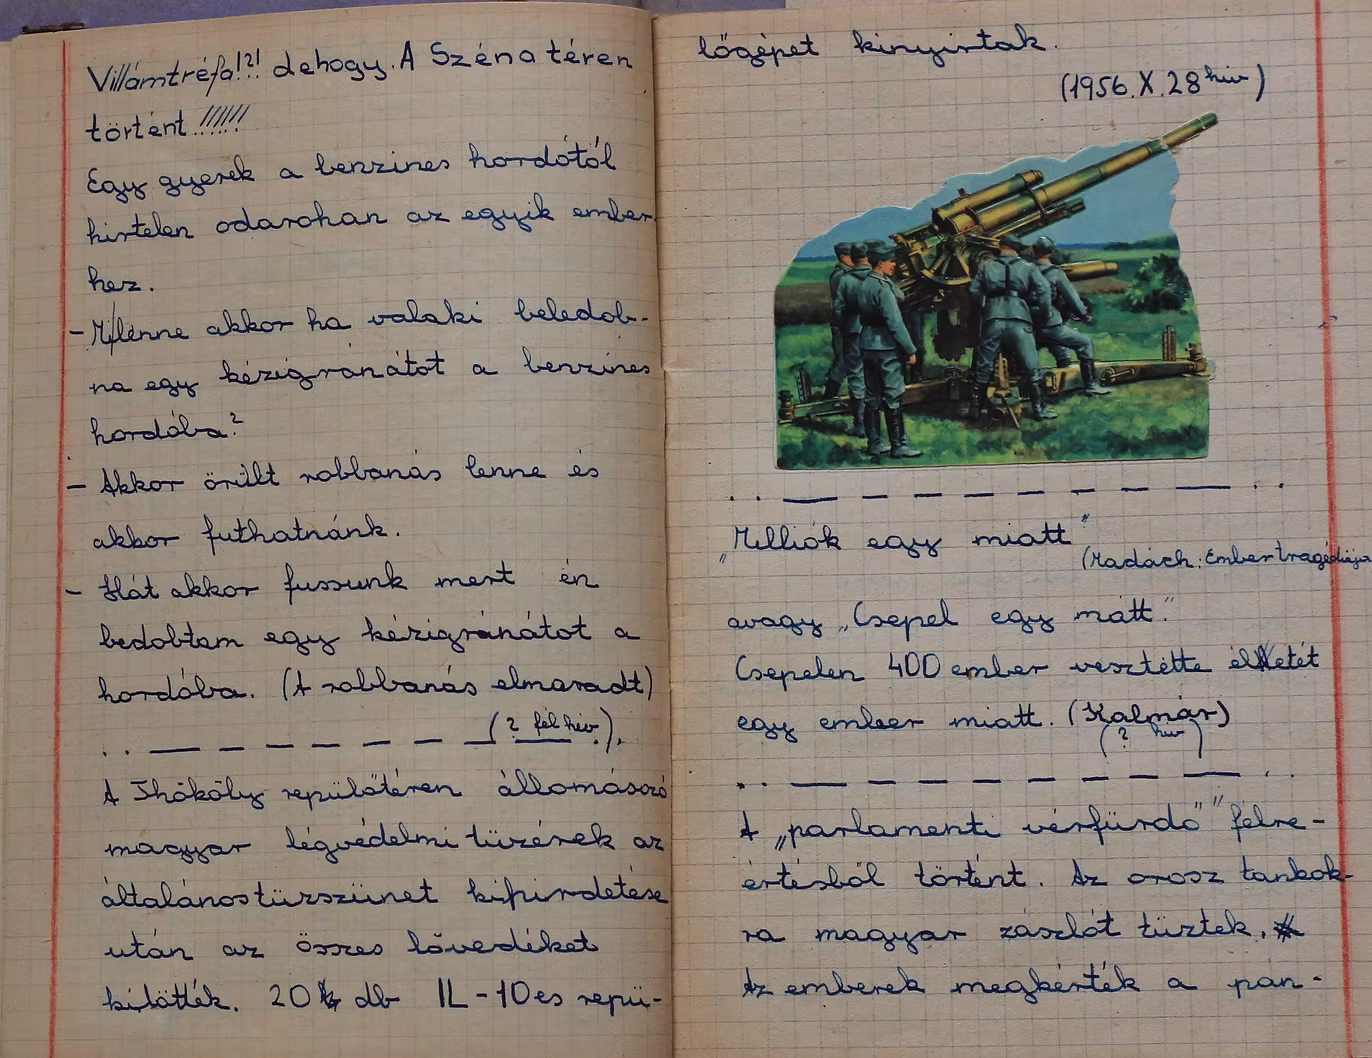 Villámtréfa!?! dehogy. A Széna téren
történt !!!!!!
Egy gyerek a benzines hordótól
hirtelen odarohan az egyik ember
hez.
- Mi lenne akkor ha valaki beledob-
na egy kézigránátot a benzines
hordóba?
- Akkor örült robbanás lenne és
akkor futhatnánk.
- Hát akkor fussunk mert én
bedobtam egy kézigránátot a
hordóba. (A robbanás elmaradt)
(? fél hiv).
A Thököly repülőtéren állomásozó
magyar légvédelmi tüzérek az
általános tüzszünet kihirdetése
után az összes lövedéket
kilőtték. 20 db IL-10es repü-
lőgépet kinyirtak.
(1956. X. 28 hiv)
„Milliók egy miatt"
(Madách: Ember tragédiája
avagy „Csepel egy matt."
Csepelen 400 ember vesztette életét
egy ember miatt. (Kalmár)
(? hiv)
A „parlamenti vérfürdő" félre-
értésből történt. Az orosz tankok-
ra magyar zászlót tüztek.
Az emberek megkérték a pán-